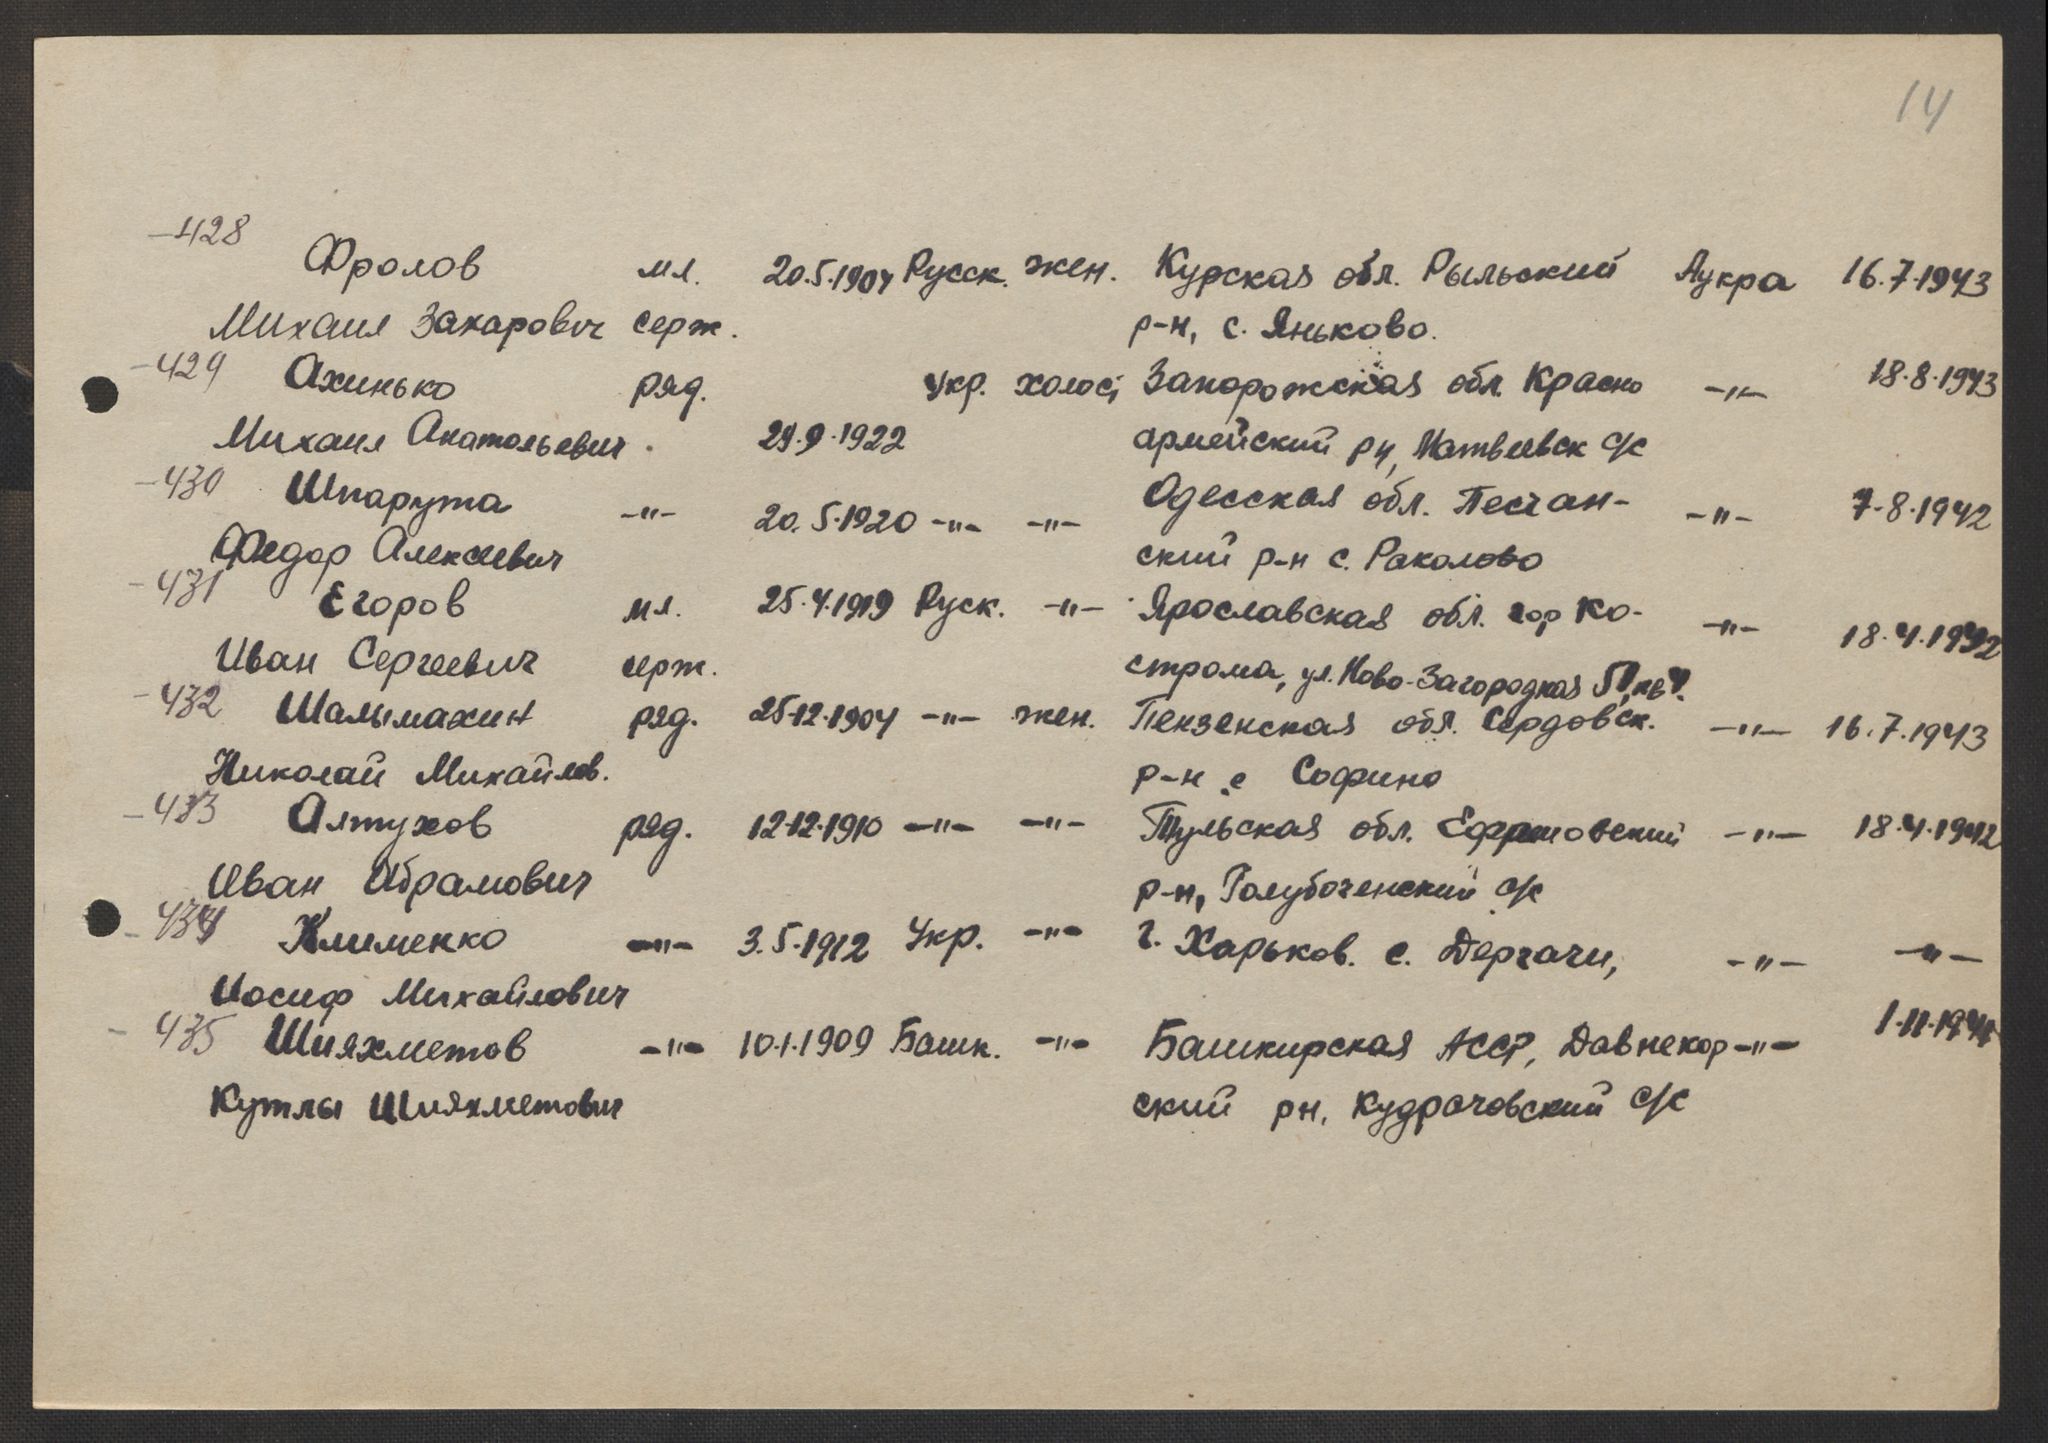 14
428
Фролов мл. 20.5.1904 Русск. жен. Курская обл. Рыльский Аукра 16.7.1943
Михаил Захарович серж. р-н, с. Яньково.
429 Ахинько ряд. Укр. холост Запорожская обл. Красно -"- 18.8.1943
Михаил Анатольевич 24.9.1922 армейский рн, Матвеевск с/с
430 Шпарута -"- 20.5.1920 -"- -"- Одесская обл. Песчан- -"- 7.8.1942
Федор Алексеевич ский р-н с. Раколово
431 Егоров мл. 25.4.1919 Руск. -"- Ярославская обл. гор Ко- -"- 18.4.1942
Иван Сергеевич серж. строма, ул. Ново-Загородная кв
432 Шалымахин ряд. 25.12.1904 -"- жен. Пензенская обл. Сердовск. -"- 16.7.1943
Николай Михайлов. р-н с Софино
433 Алтухов ряд. 12.12.1910 -"- -"- Тульская обл. Ефремовский -"- 18.4.1942
Иван Абрамович р-н, Голубоченский с/с
434 Клименко -"- 3.5.1912 Укр. -"- г. Харьков. с. Дергачи, -"- -"-
Иосиф Михайлович
435 Шияхметов -"- 10.1.1909 Башк. -"- Башкирская АССР, Давнекор -"- 1.11.1944
Кутлы Шияхметович ский рн, Кудрачовский с/с